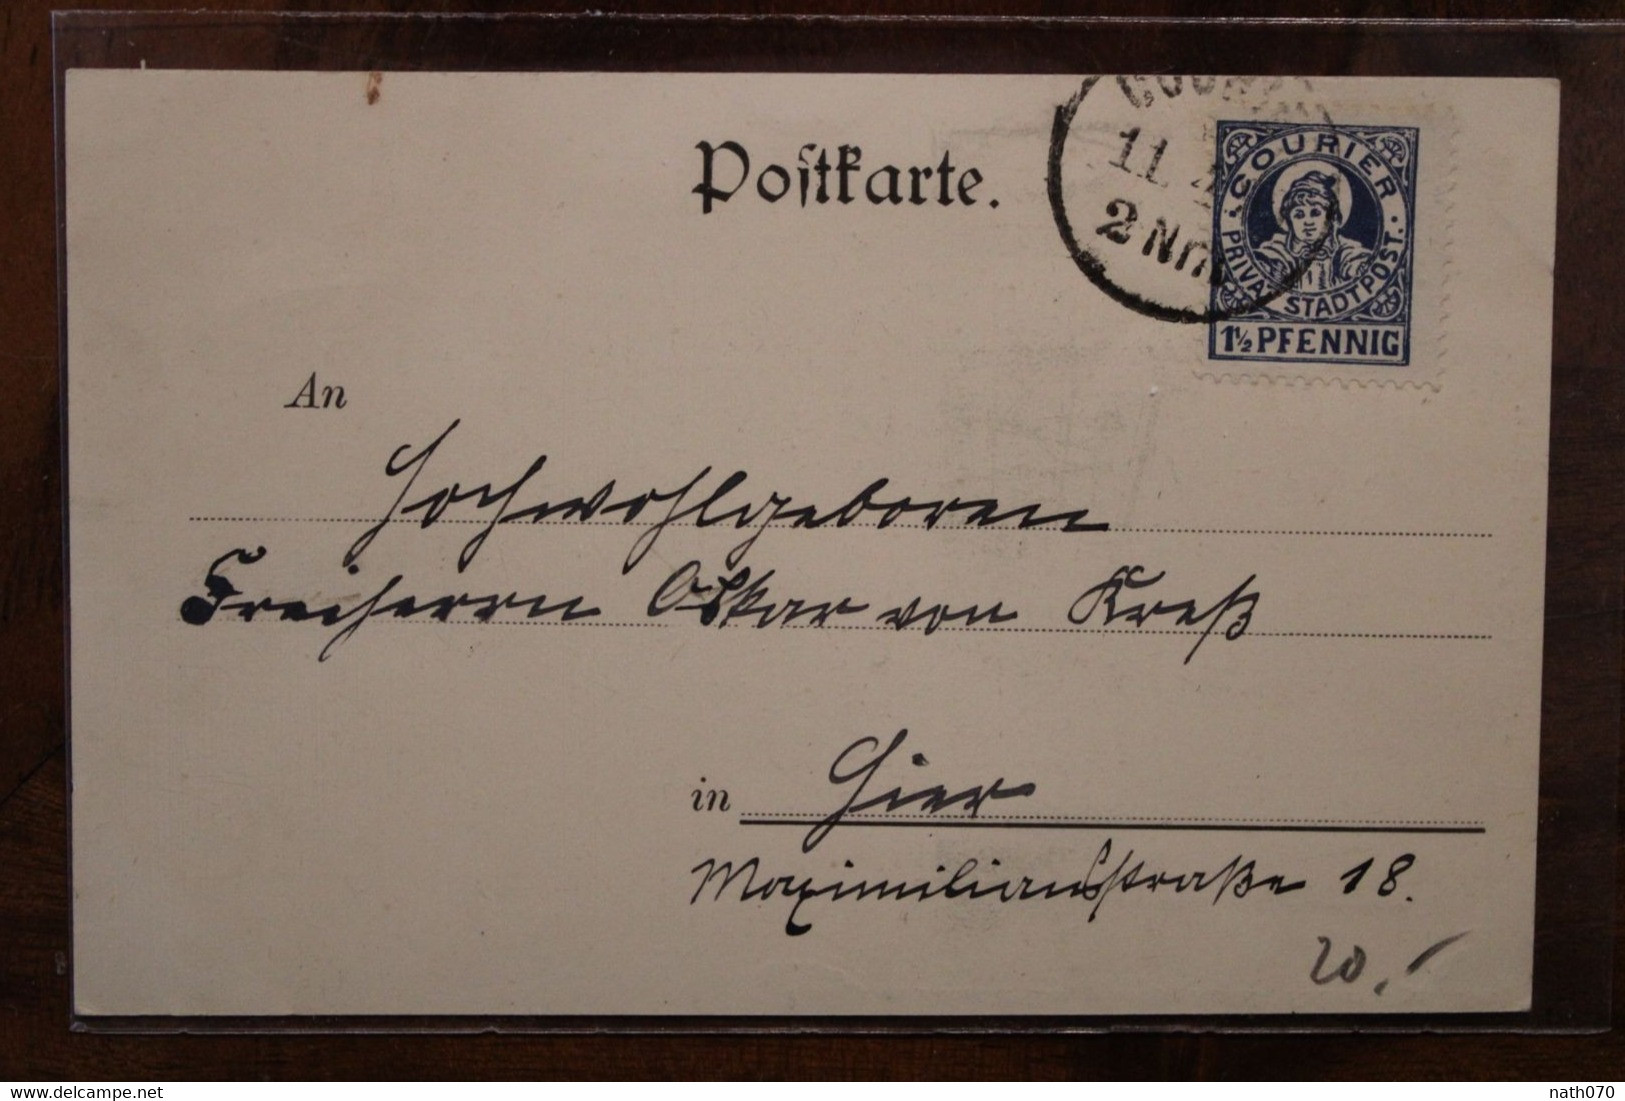 Postkarte.
11
2 Nm
COURIER
PRIVAT STADTPOST.
1½ PFENNIG
An
Hochwohlgeboren
Freiherrn Oskar von Kreß
in Hier
Maximiliansstraße 18.
20.
delcampe.net
nath070